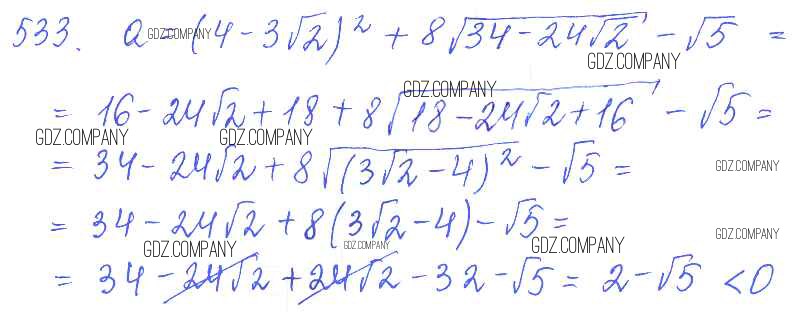 533. a = (4 - 3√2)² + 8√(34 - 24√2) - √5 =
= 16 - 24√2 + 18 + 8√(18 - 24√2 + 16) - √5 =
= 34 - 24√2 + 8√((3√2 - 4)²) - √5 =
= 34 - 24√2 + 8(3√2 - 4) - √5 =
= 34 - 24√2 + 24√2 - 32 - √5 = 2 - √5 < 0
GDZ.COMPANY
GDZ.COMPANY
GDZ.COMPANY
GDZ.COMPANY
GDZ.COMPANY
GDZ.COMPANY
GDZ.COMPANY
GDZ.COMPANY
GDZ.COMPANY
GDZ.COMPANY